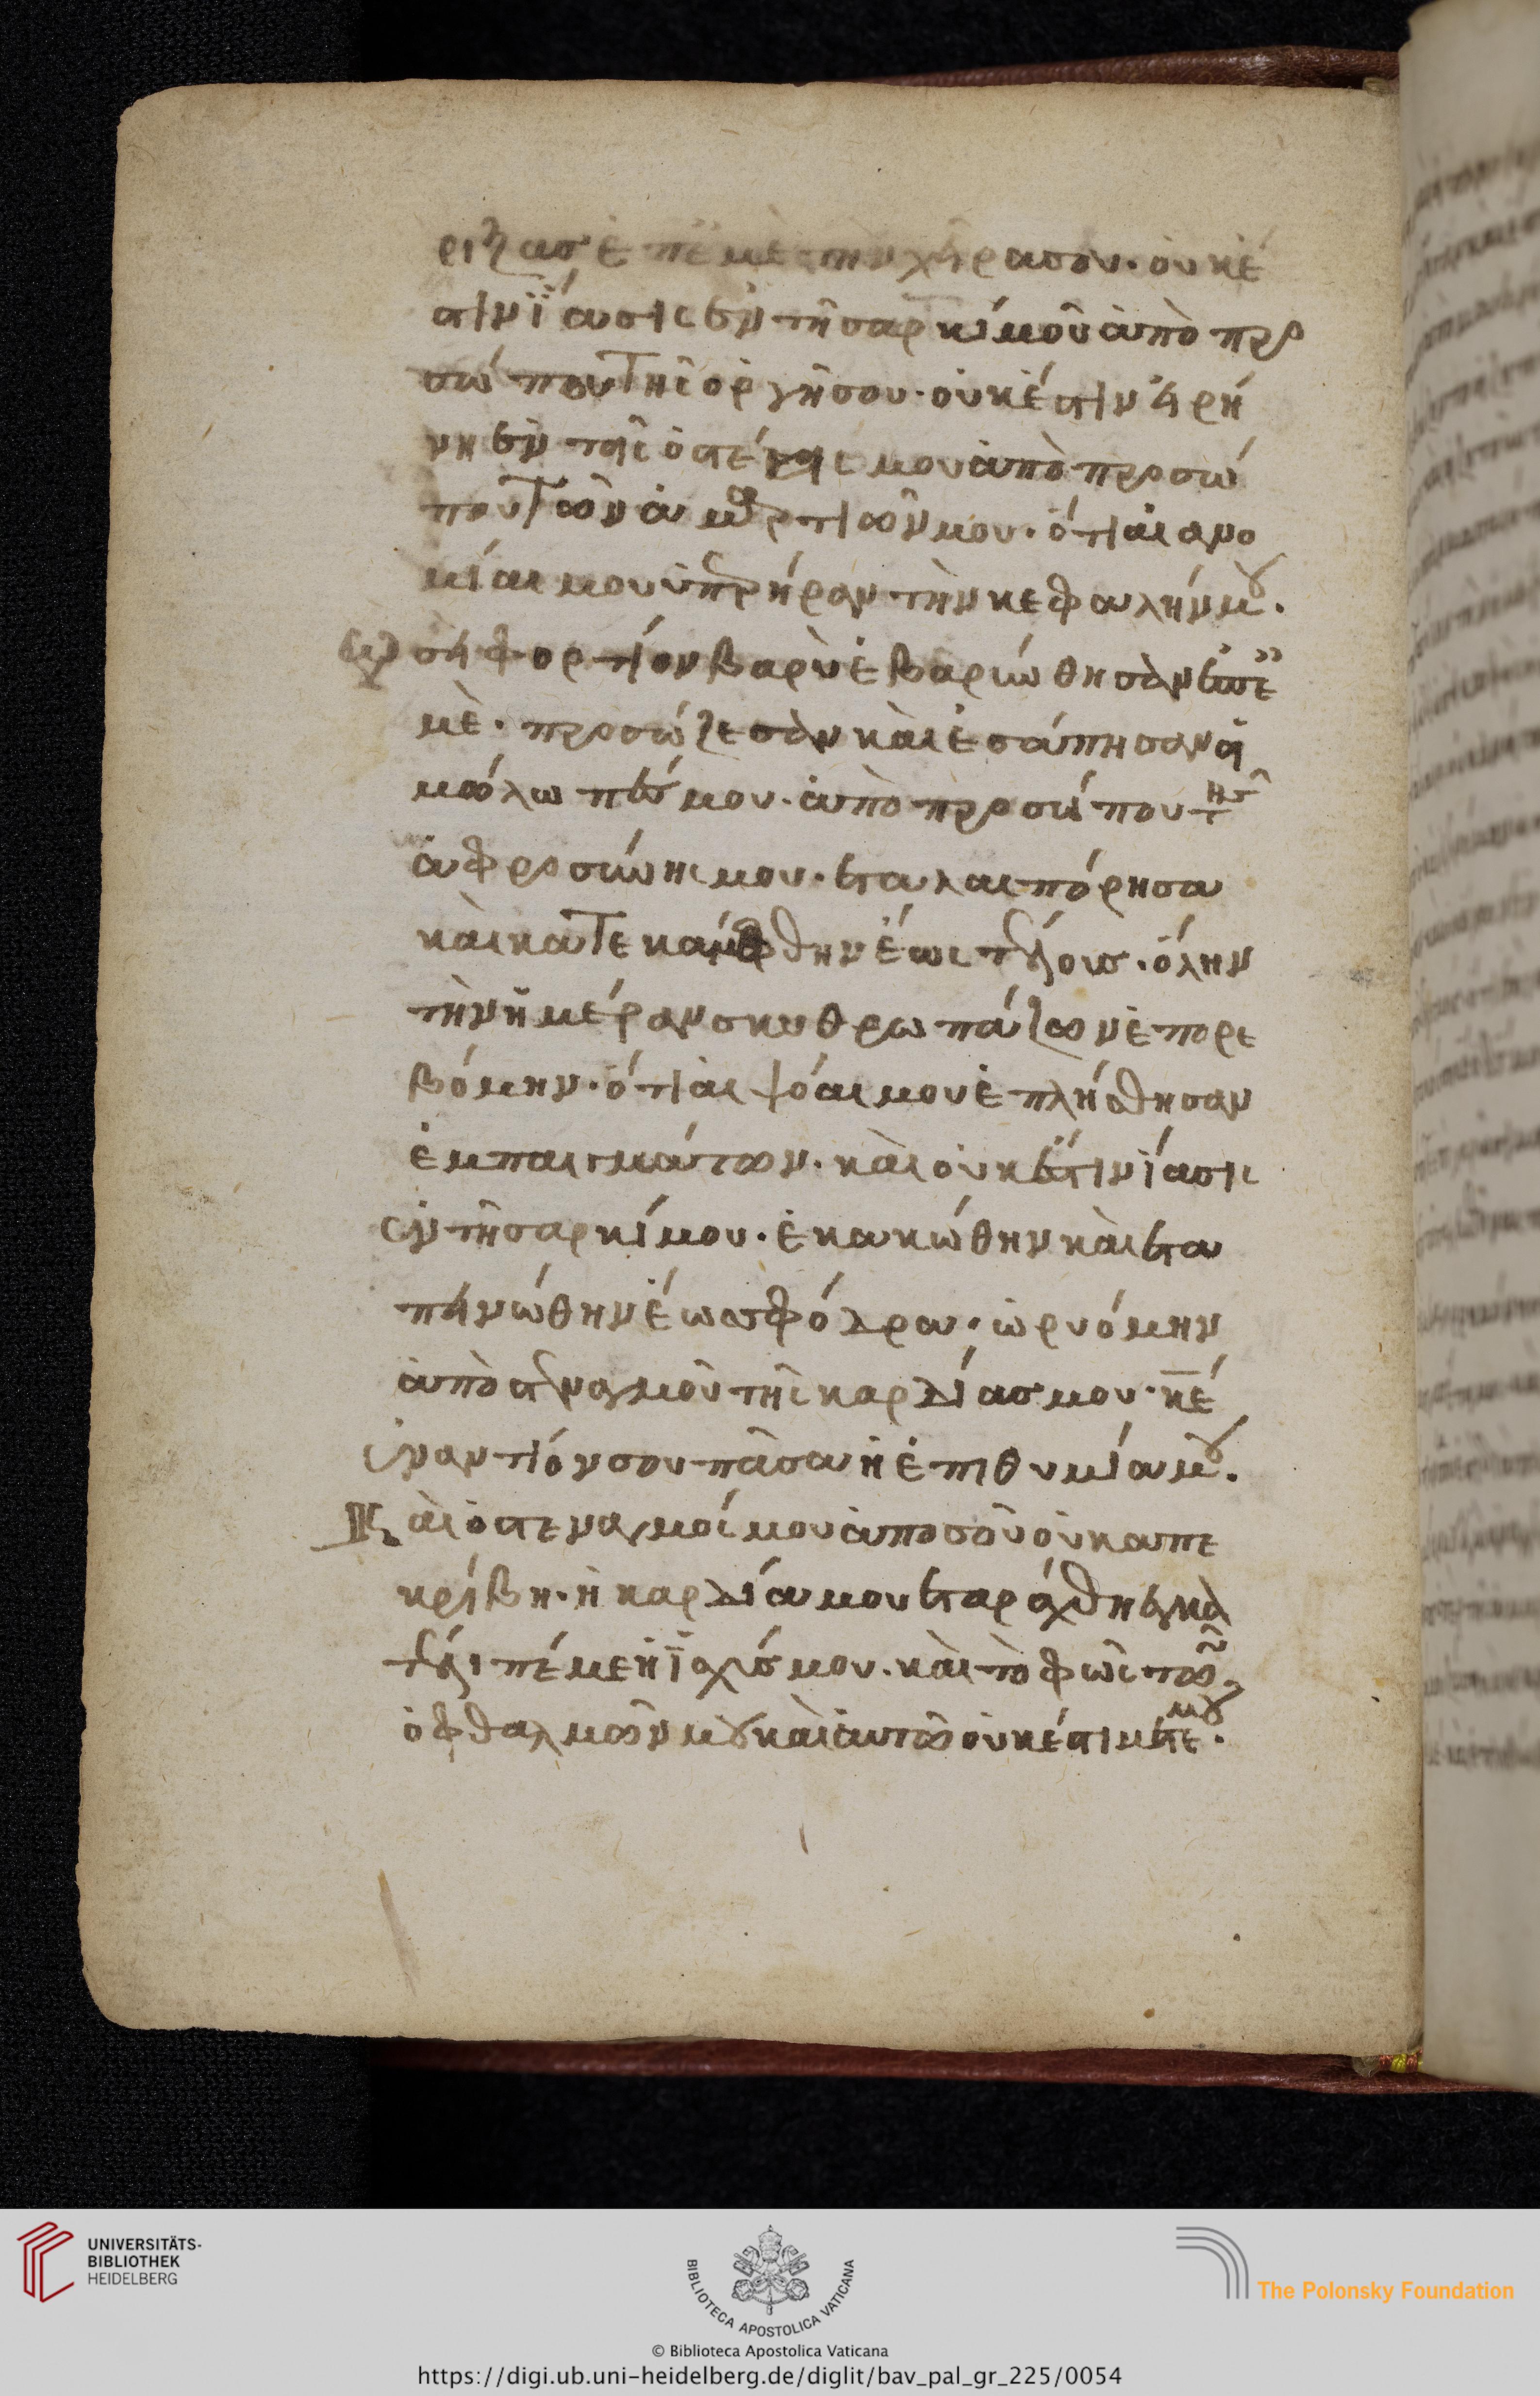 ριξας ἐπ ἐμὲ τὴν χεῖρα σου· οὐκ ἔ
στιν ἴασις ἐν τῆ σαρκί μοῦ ἀπὸ προ
σώπου τῆς ὀργῆ σου· οὐκ ἔστιν εἰρή
νη ἐν τοῖς ὀστέοις μου ἀπὸ προσώ
που τῶν ἁμαρτιῶν μου· ὅτι ἁι ανο
μίαι μου ὑπερήραν τὴν κεφαλήν μου.
ὡσεί φορτίον βαρὺ ἐβαρύνθησὰν ἐπ ε
μὲ· προσώζεσὰν κὰι ἐσάπησαν οἱ
μώλωπές μου· ἀπὸ προσώπου τῆς
ἀφροσύνης μου· ἐταλαιπόρησα
κὰι κατεκάμφθην ἕως τέλους· ὅλην
τὴν ἡμέραν σκυθρωπάζων ἐπορε
βόμην· ὅτι ἁι ψόαι μου ἐπλήσθησαν
ἐμπαιγμάτων· κὰι οὐκ ἔστιν ἴασις
ἐν τῆ σαρκί μου· ἐκακώθην κὰι ετα
πεινώθην ἕως σφόδρα· ὠρυόμην
ἀπὸ στεναγμοῦ τῆς καρδίας μου· κε
ἐναντίον σου πᾶσα ἡ ἐπιθυμία μου.
Κὰι ὁ στεναγμοί μου ἀπο σοῦ οὐκ απε
κρίβη· ἡ καρδία μου εταράχθη ἐγκα
τέλιπέ με ἡ ἰσχύς μου· κὰι τὸ φῶς τῶν
ὀφθαλμῶν μου κὰι ἀυτὸ οὐκ έστι μετ ε
μου.
UNIVERSITÄTS-
BIBLIOTHEK
HEIDELBERG
BIBLIOTECA APOSTOLICA VATICANA
The Polonsky Foundation
© Biblioteca Apostolica Vaticana
https://digi.ub.uni-heidelberg.de/diglit/bav_pal_gr_225/0054